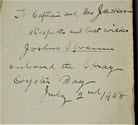 To Captain and Mrs
Respects and best wishes
Joshua Slocum
onboard the Spray
Oyster Bay
July 2nd 1908